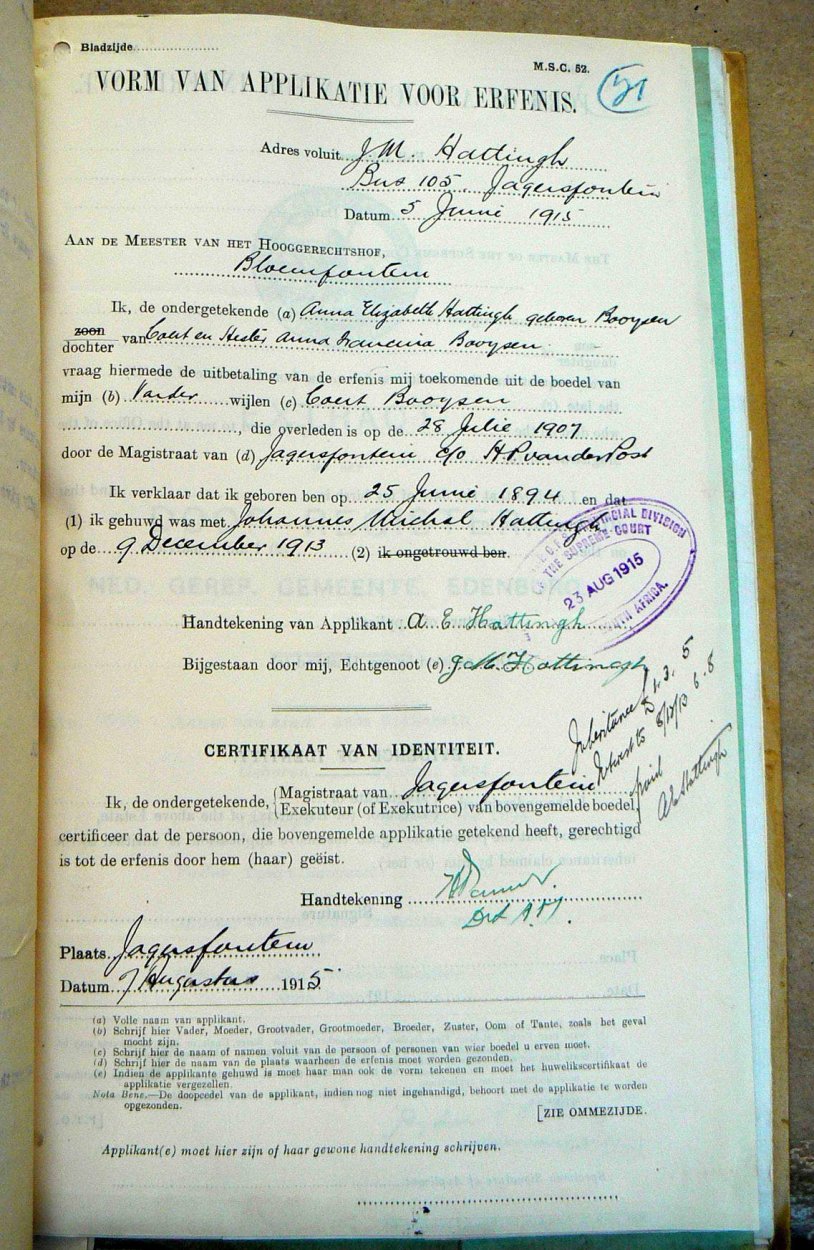 Bladzijde
M.S.C. 52.
51
VORM VAN APPLIKATIE VOOR ERFENIS.
Adres voluit J. M. Hattingh
Bus 105 Jagersfontein
Datum 5 Junie 1915
AAN DE MEESTER VAN HET HOOGGERECHTSHOF,
Bloemfontein
Ik, de ondergetekende (a) Anna Elizabeth Hattingh geboren Booysen
zoon
dochter van Coert en Hester Anna Francina Booysen
vraag hiermede de uitbetaling van de erfenis mij toekomende uit de boedel van
mijn (b) Vader wijlen (c) Coert Booysen
, die overleden is op de 28 Julie 1907
door de Magistraat van (d) Jagersfontein c/o H P. van der Post
Ik verklaar dat ik geboren ben op 25 Junie 1894 en dat
(1) ik gehuwd was met Johannes Michal Hattingh
op de 9 December 1913 (2) ik ongetrouwd ben.
PROVINCIAL DIVISION
THE SUPREME COURT
23 AUG 1915
SOUTH AFRICA.
Handtekening van Applikant A E Hattingh
Bijgestaan door mij, Echtgenoot (e) J. M. Hattingh
Inheritance £1. 3. 5
Interest to 8/12/13 6. 8
paid
CERTIFIKAAT VAN IDENTITEIT.
Ik, de ondergetekende, Magistraat van Jagersfontein
Exekuteur (of Exekutrice) van bovengemelde boedel,
certificeer dat de persoon, die bovengemelde applikatie getekend heeft, gerechtigd
is tot de erfenis door hem (haar) geëist.
Handtekening
Plaats Jagersfontein
Datum 7 Augustus 1915
(a) Volle naam van applikant.
(b) Schrijf hier Vader, Moeder, Grootvader, Grootmoeder, Broeder, Zuster, Oom of Tante, zoals het geval
mocht zijn.
(c) Schrijf hier de naam of namen voluit van de persoon of personen van wier boedel u erven moet.
(d) Schrijf hier de naam van de plaats waarheen de erfenis moet worden gezonden.
(e) Indien de applikante gehuwd is moet haar man ook de vorm tekenen en moet het huwelikscertifikaat de
applikatie vergezellen.
Nota Bene.—De doopcedel van de applikant, indien nog niet ingehandigd, behoort met de applikatie te worden
opgezonden.
[ZIE OMMEZIJDE.
Applikant(e) moet hier zijn of haar gewone handtekening schrijven.